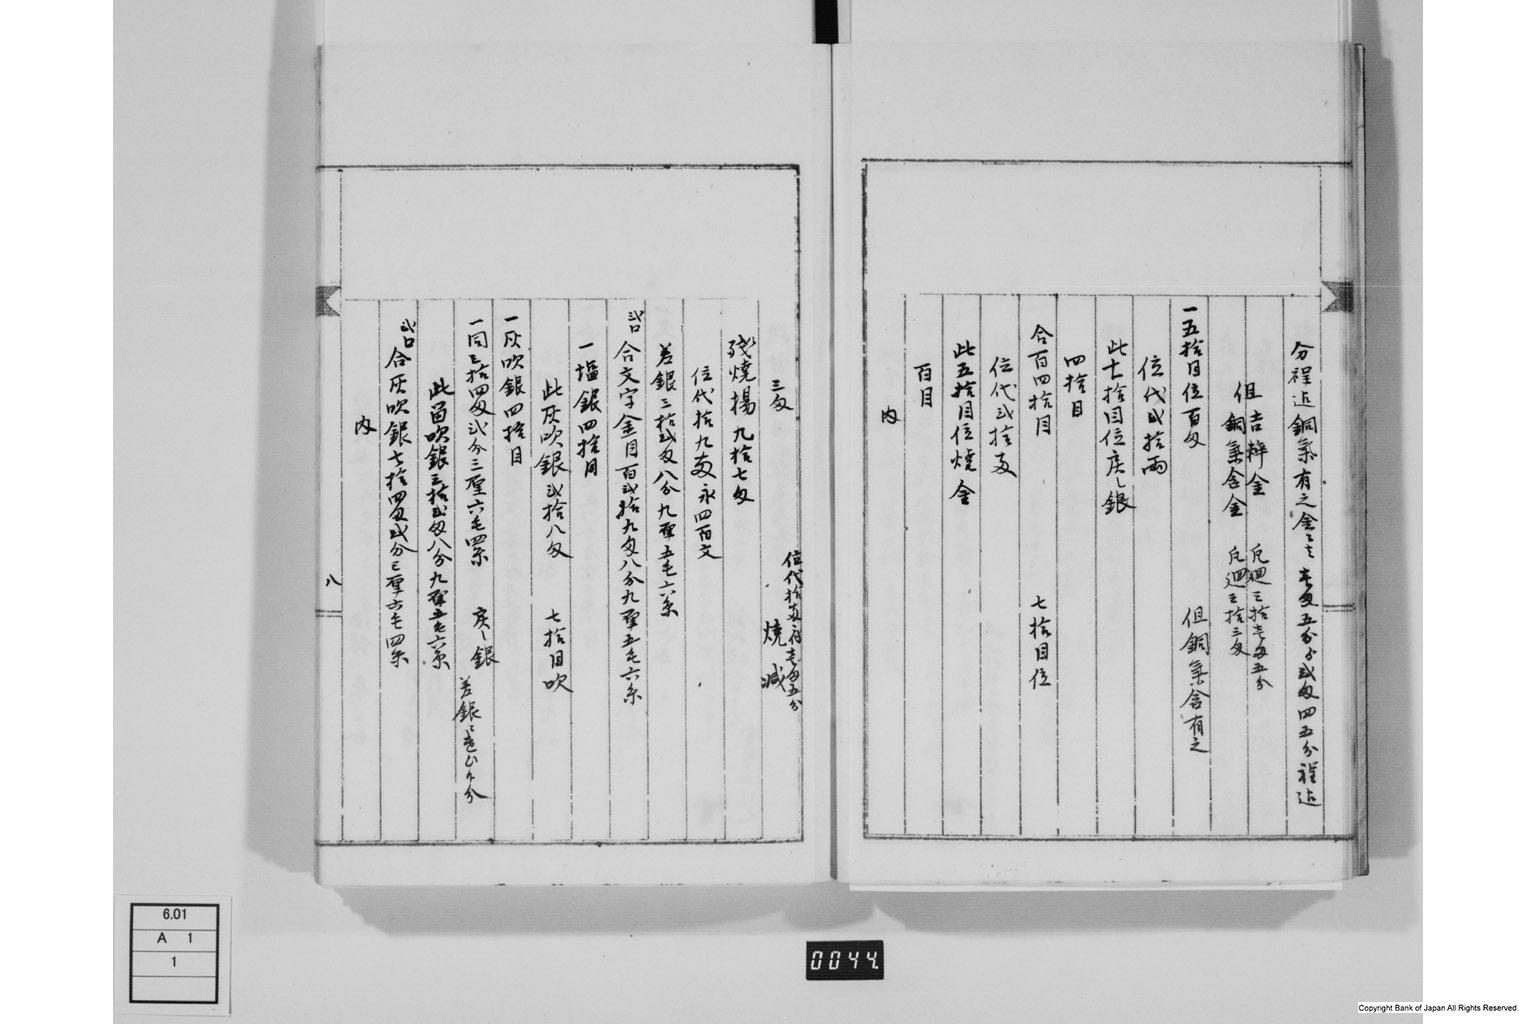 分程迄銅氣有之金ニ壱匁五分ゟ弐匁四五分程迄
但 吉粹金 凡廻三拾壱匁五分
銅氣含金 凡廻三拾三匁
一五拾目位百匁 但銅氣含有之
位代弐拾両
此七拾目位灰し銀
四拾目
合百四拾目 七拾目位
位代弐拾両
此五拾目位焼金
百目
内
三匁 焼減
位代拾両
残焼揚九拾七匁
位代拾九両永四百文
差銀三拾弐匁八分九厘五毛六糸
弐口合文字金目百弐拾九匁八分九厘五毛六糸
一塩銀四拾目
此灰吹銀弐拾八匁 七拾目吹
一灰吹銀四拾目
一同三拾四匁弐分三厘六毛四糸 灰し銀
差銀
此留吹銀三拾弐匁八分九厘五毛六糸
弐口合灰吹銀七拾四匁弐分三厘六毛四糸
内
八
6.01
A 1
1
0044
Copyright Bank of Japan All Rights Reserved.